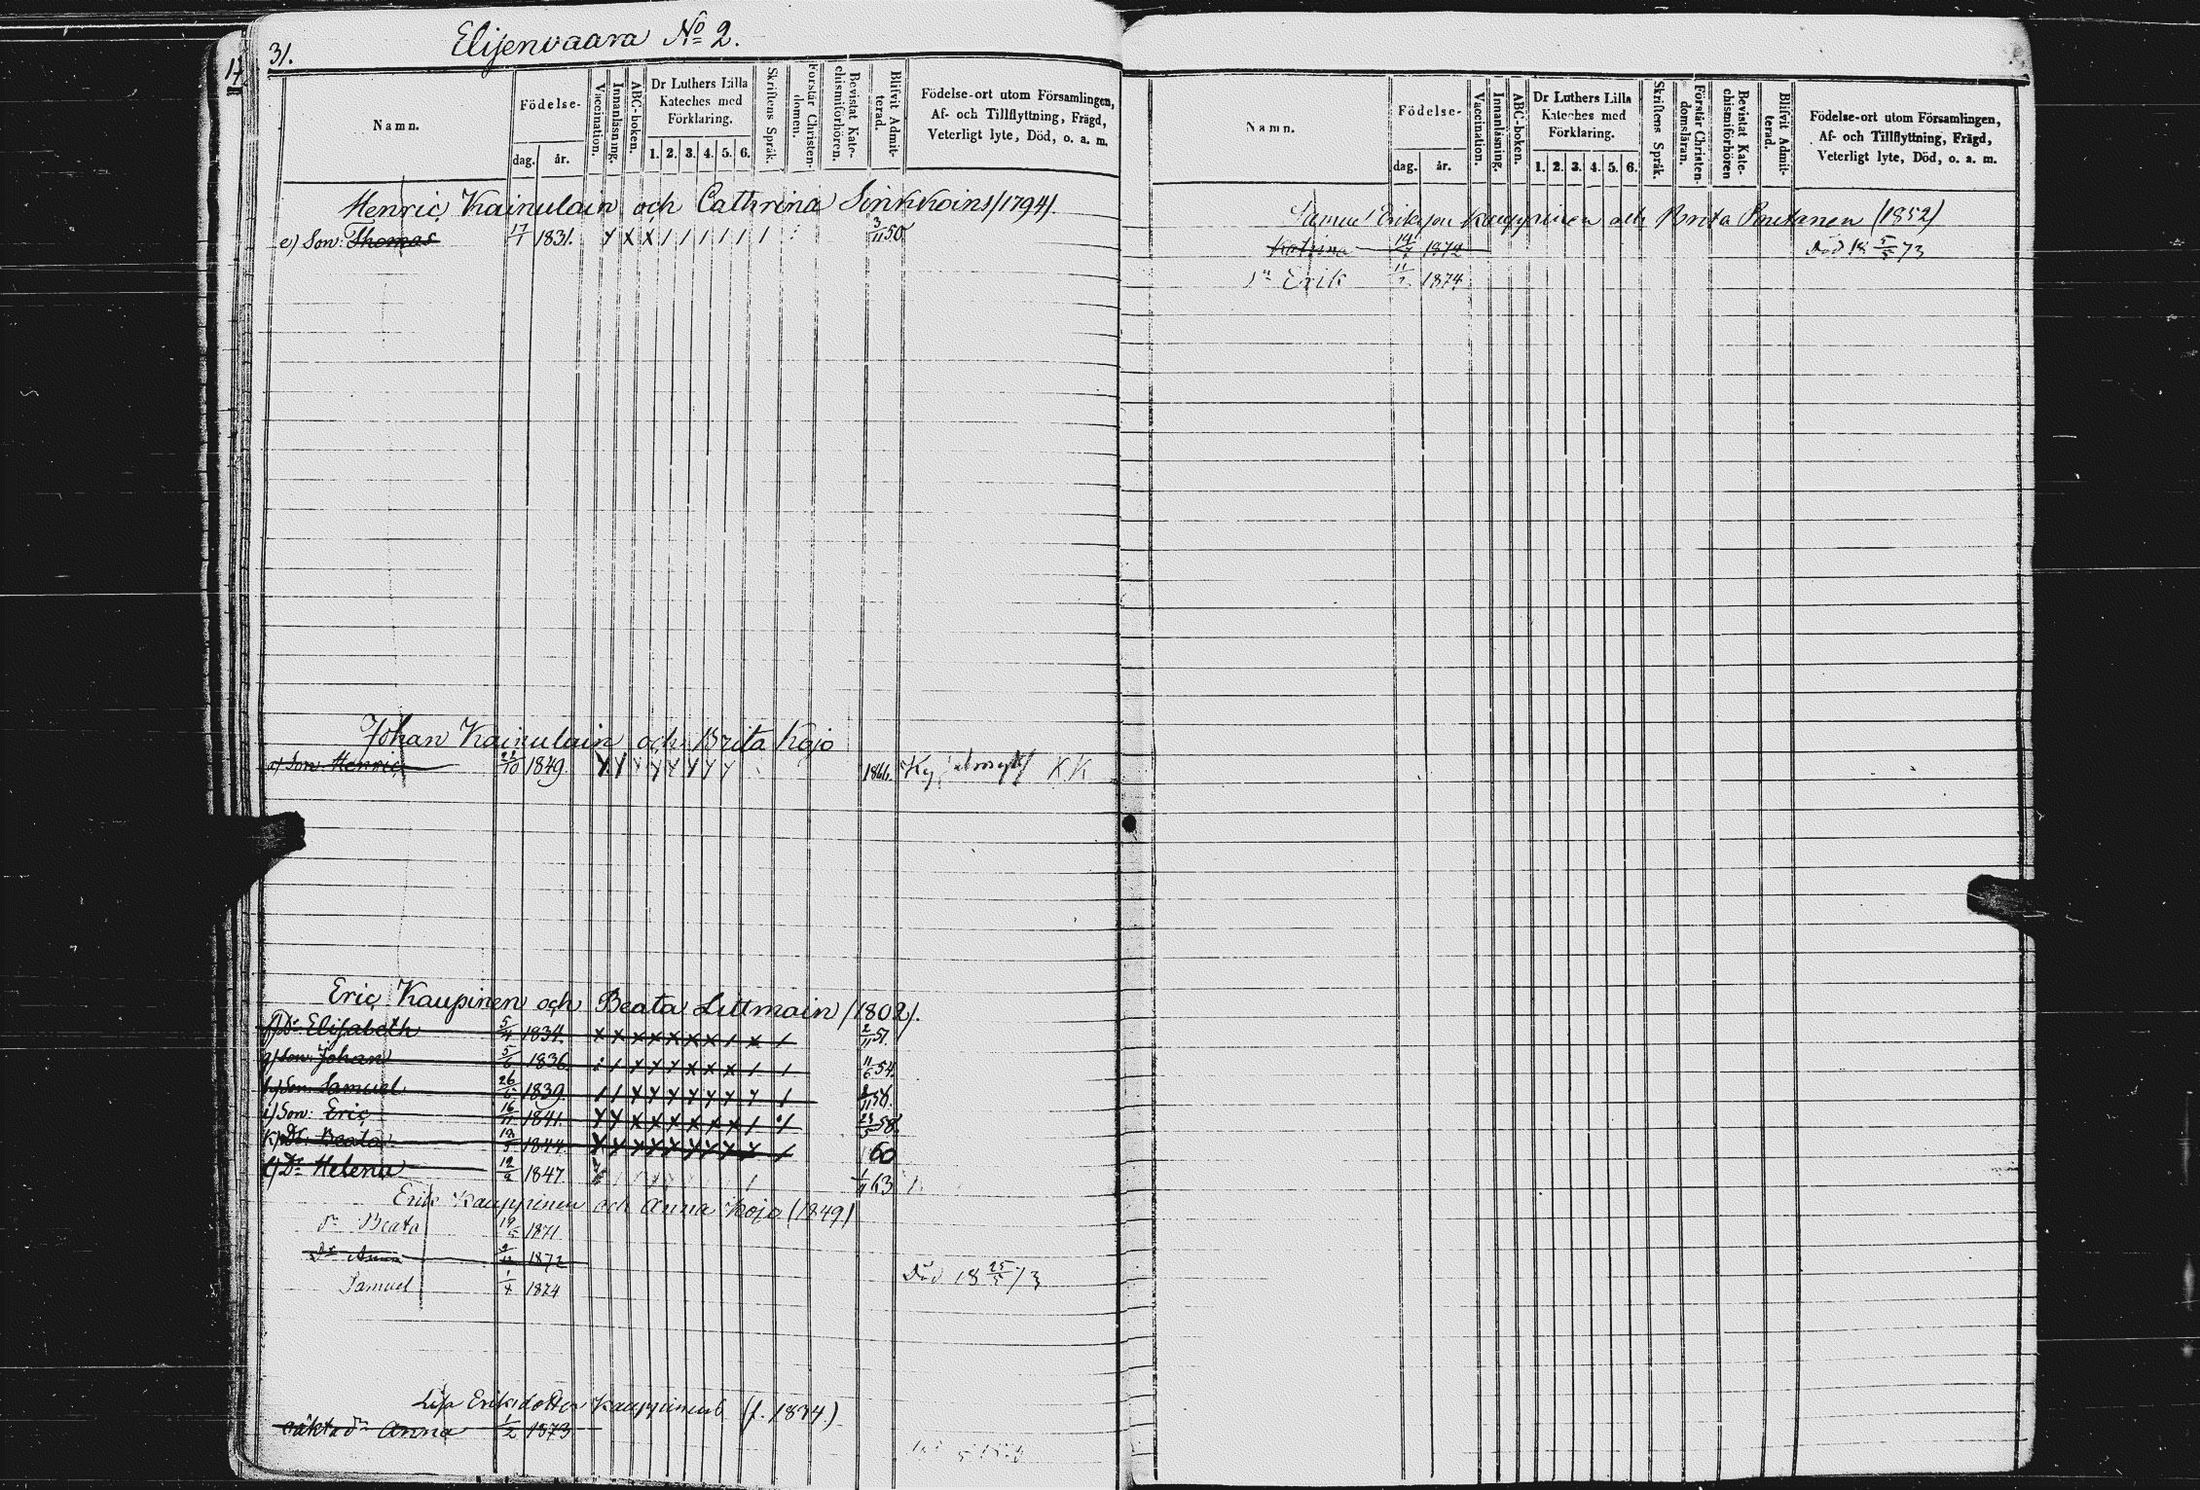 31.
Elisenvaara No 2.
17
Namn.
Födelse-
dag. år.
Vaccination.
Innanläsning.
ABC-boken.
Dr Luthers Lilla
Kateches med
Förklaring.
1. 2. 3. 4. 5. 6.
Skriftens Språk.
Förstår Christen-
domen.
Bevistat Kate-
chismiförhören.
Blifvit Admit-
terad.
Födelse-ort utom Församlingen,
Af- och Tillflyttning, Frägd,
Veterligt lyte, Död, o. a. m.
Henric Kainulain och Cathrina Sinkkoins /1794/.
e) Son: Thomas 17/1 1831. y x x / / / / / / 3/11 50
Johan Kainulain och Brita Kojo
a) Son: Henric 1849. 1866. K K
Eric Kaupinen och Beata Littmain /1802/.
f) Dr Elisabeth 5/4 1834. x x x x x x x / x / 2/11 51.
g) Son: Johan 5/6 1836. 11/6 54.
h) Son: Samuel 26/6 1839. 56.
i) Son: Eric 16/11 1841. 23/5 58.
k) Dr. Beata 1844. 60
l) Dr Helena 1847. 63
Erik Kauppinen och Anna Kojo (1849)
dr Beata 19/5 1871
Dr Anna 1872
Död 18 25/5 73
Samuel 1/4 1874
Lisa Eriksdotter Kauppinens (f. 1834)
oäkta dr Anna 1/2 1873
Namn.
Födelse-
dag. år.
Vaccination.
Innanläsning.
ABC-boken.
Dr Luthers Lilla
Kateches med
Förklaring.
1. 2. 3. 4. 5. 6.
Skriftens Språk.
Förstår Christen-
domsläran.
Bevistat Kate-
chismiförhören
Blifvit Admit-
terad.
Födelse-ort utom Församlingen,
Af- och Tillflyttning, Frägd,
Veterligt lyte, Död, o. a. m.
Samuel Eriksson Kauppinen och Brita Poutanen (1852)
Katrina 1872 Död 18 5/5 73
sn Erik 1874